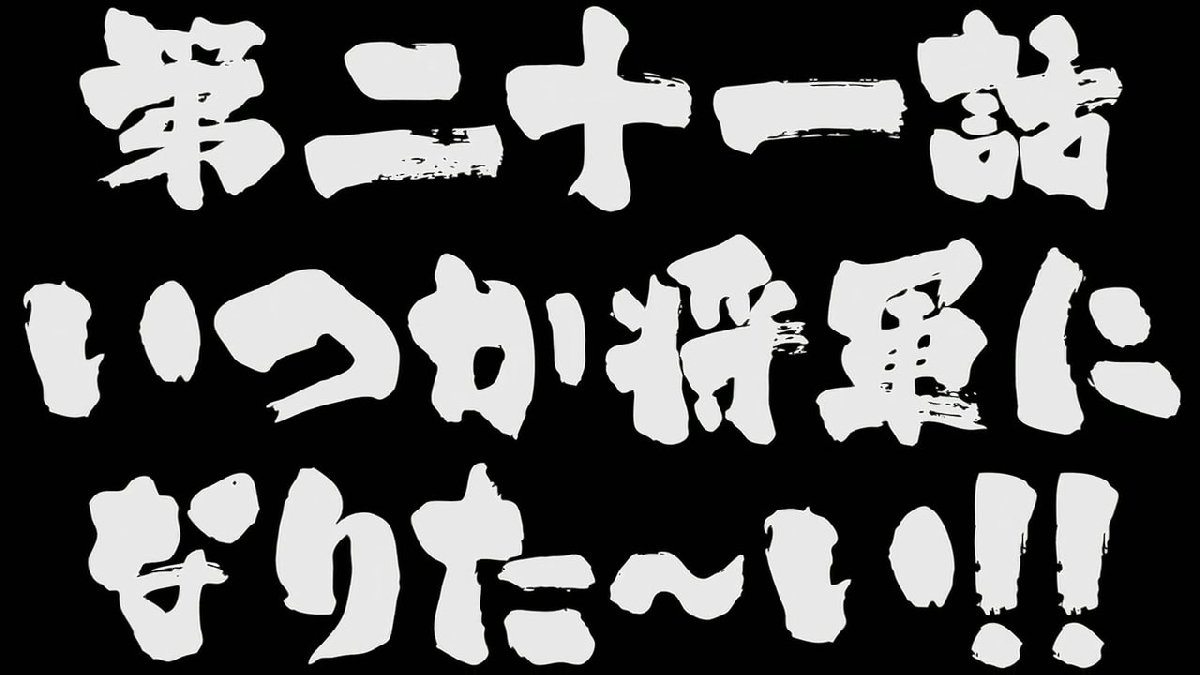 第二十一話
いつか将軍に
なりた～い!!